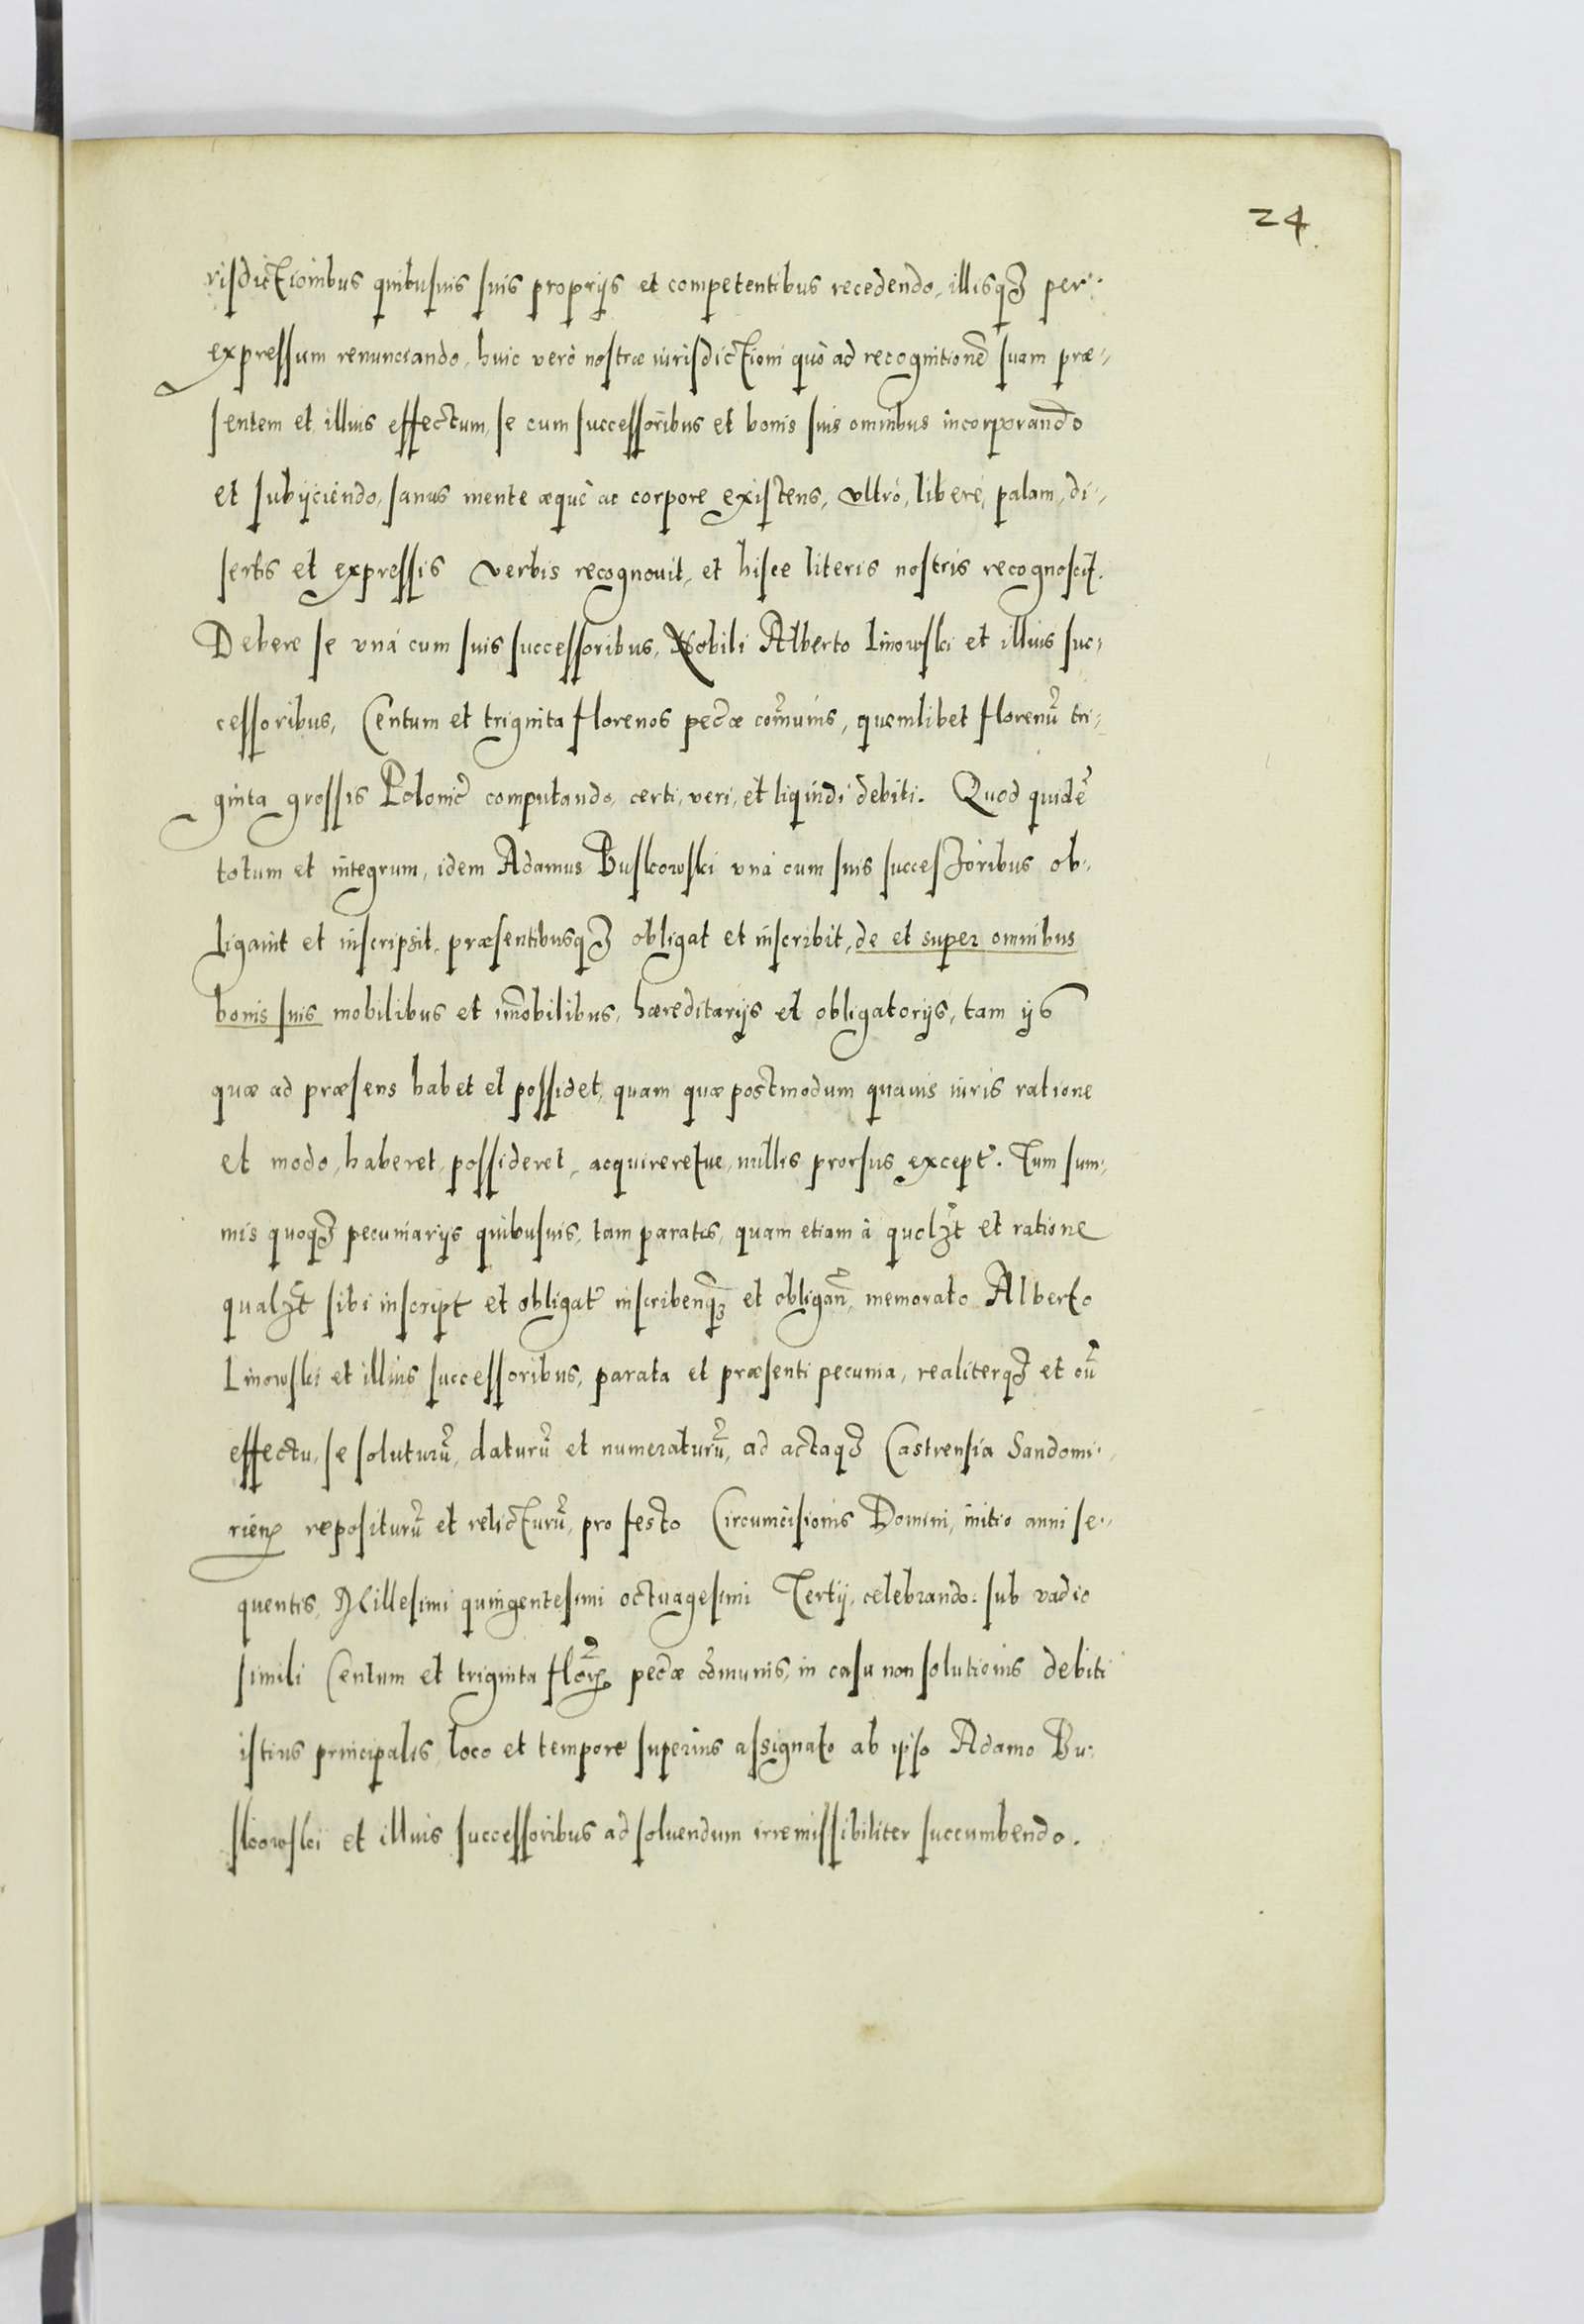 24
risdictionibus quibusuis suis proprijs et competentibus recedendo, illisq3 per
expressum renunciando, huic verò nostræ iurisdictioni quò ad recognitionē suam præ-
sentem et illius effectum, se cum successoribus et bonis suis omnibus incorporando
et subijciendo, sanus mente æquè ac corpore existens, vltrò, liberè, palam, di-
sertis et expressis verbis recognouit, et hisce literis nostris recognoscit.
Debere se vnà cum suis successoribus, Nobili Alberto Linowski et illius suc-
cessoribus, Centum et triginta florenos pecūæ com̄unis, quemlibet florenū tri-
ginta grossis Polonic̄ computando, certi, veri, et liquidi debiti. Quod quidē
totum et integrum, idem Adamus Buskowski vnà cum suis successoribus ob-
ligauit et inscripsit, præsentibusq3 obligat et inscribit, de et super omnibus
bonis suis mobilibus et im̄obilibus, hæreditarijs et obligatorijs, tam ijs
quæ ad præsens habet et possidet, quam quæ postmodum quauis iuris ratione
et modo, haberet, possideret, acquireretue, nullis prorsus except̄. Tum sum-
mis quoq3 pecuniarijs quibusuis, tam paratis, quam etiam à quolꝫt et ratione
qualꝫt sibi inscript̄ et obligat̄ inscribenq̄3 et obligan̄, memorato Alberto
Linowski et illius successoribus, parata et præsenti pecunia, realiterq3 et cū
effectu, se soluturū, daturū et numeraturū, ad actaq3 Castrensia Sandomi-
rien̄ repositurū et relicturū, pro festo Circumcisionis Domini, initio anni se-
quentis, Millesimi quingentesimi octuagesimi Tertij, celebrando: sub vadio
simili Centum et triginta flor̄ pecūæ com̄unis, in casu non solutionis debiti
istius principalis, loco et tempore superius assignato ab ipso Adamo Bu-
skowski et illius successoribus ad soluendum irremissibiliter succumbendo.